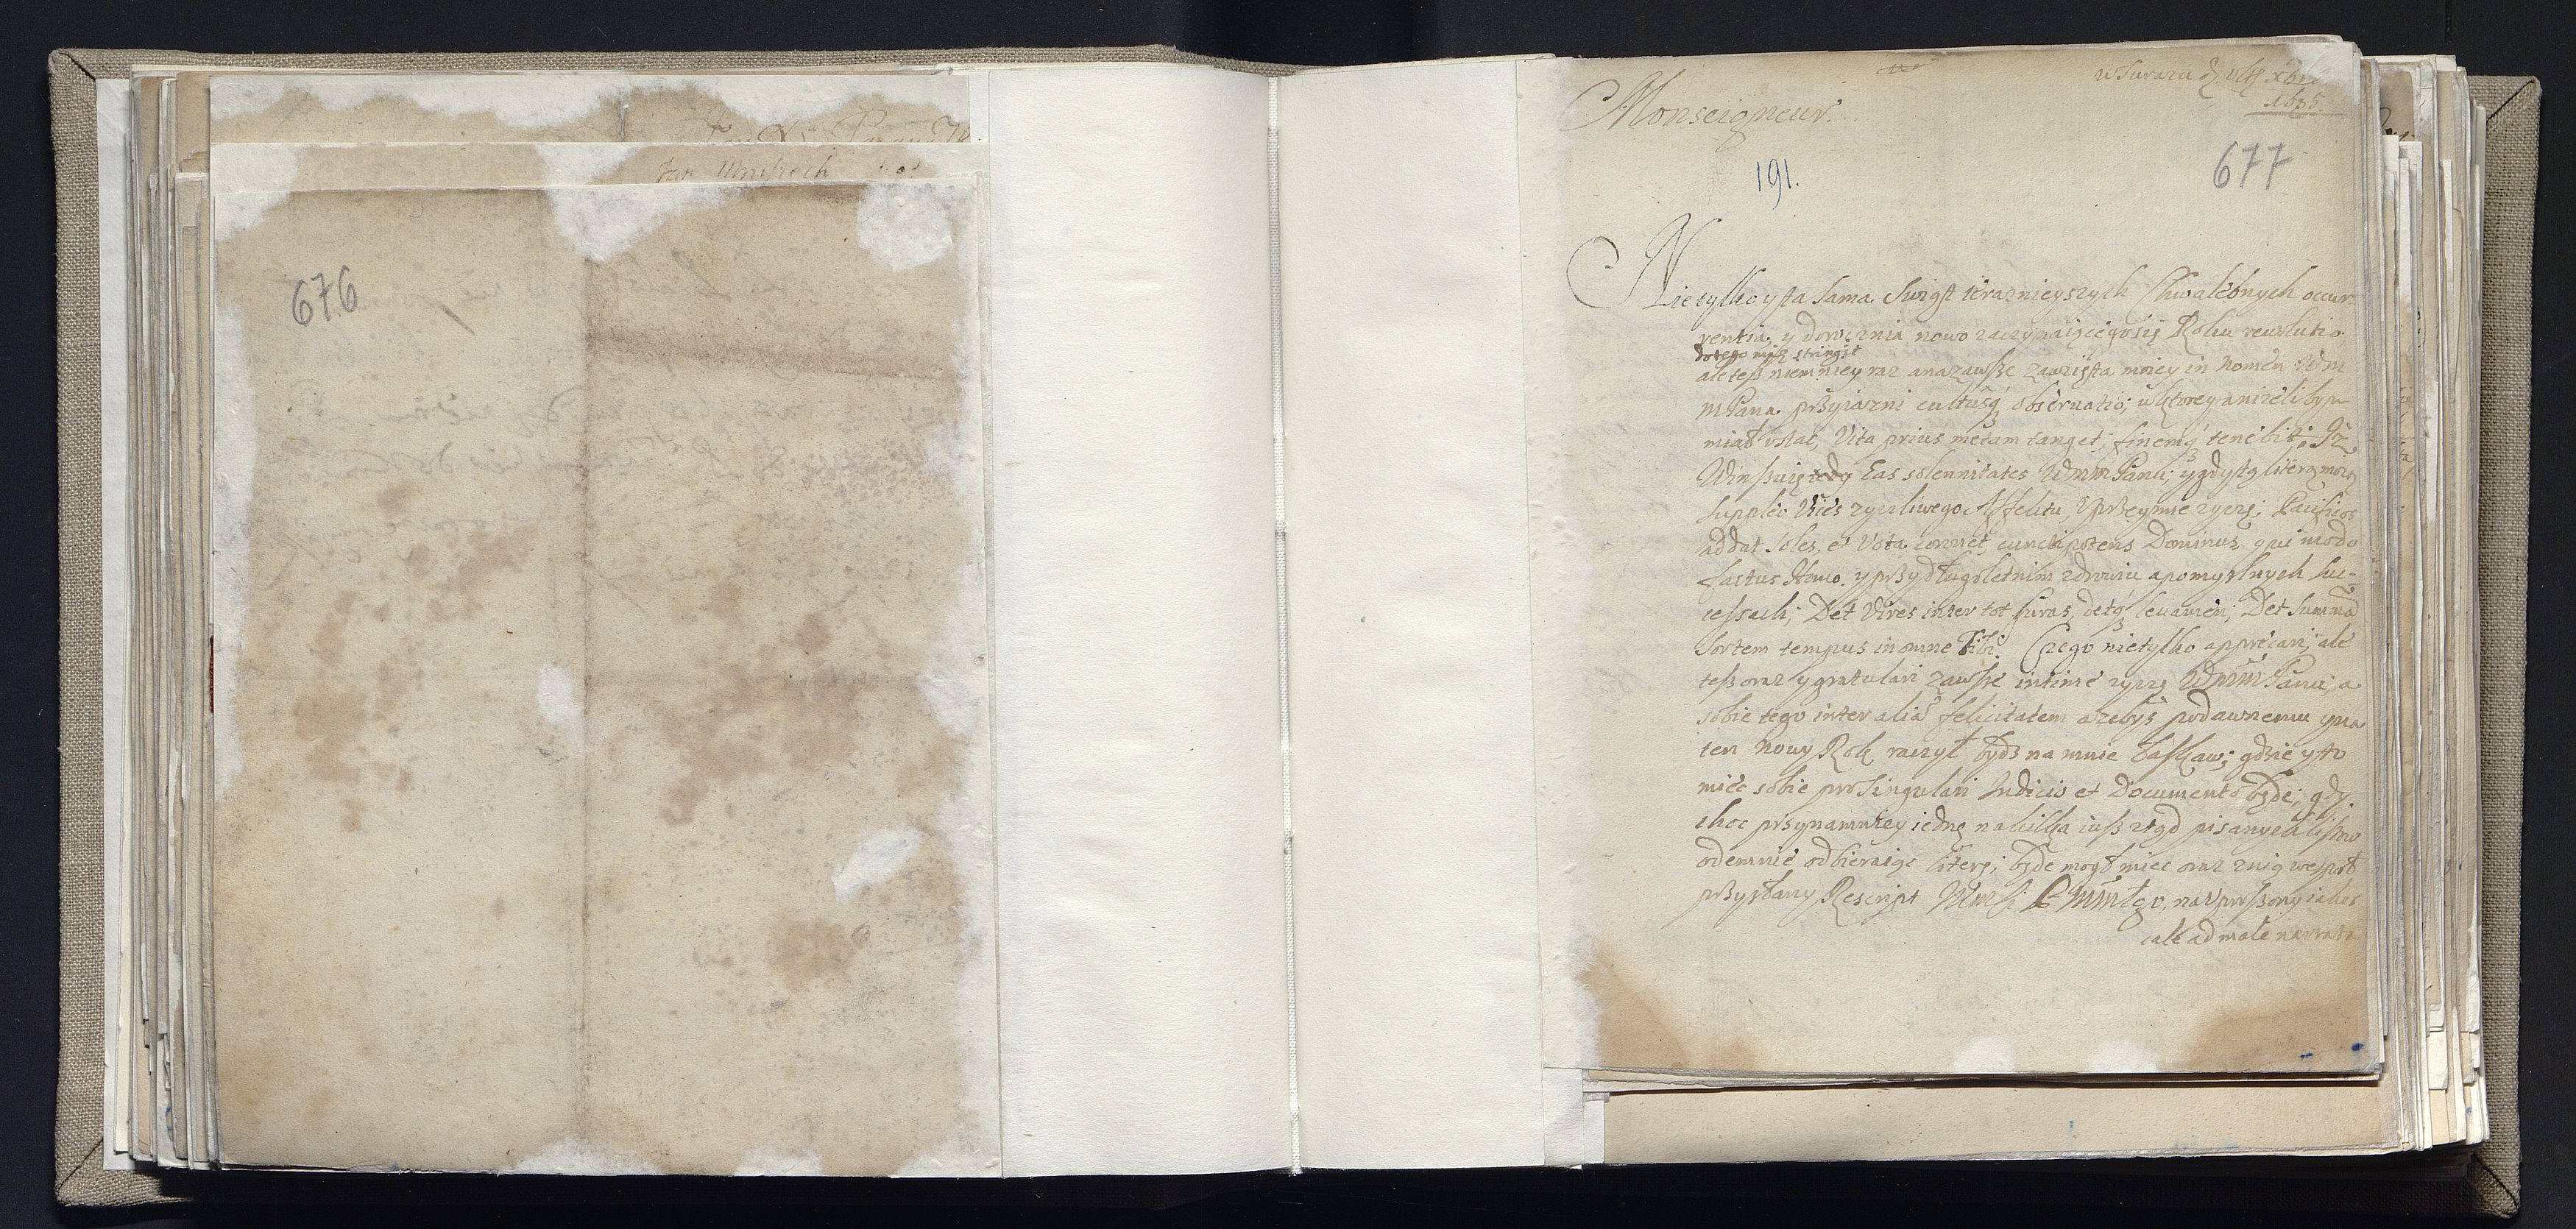 Jan Mniszech
676
w Surazu d. ult. xbr.
1695.
Monseigneur.
677
191.
Nie tylko yta sama Swiąt teraznieyszych Chwalebnych occur
rentia, y dorocznia nowo zaczynaiącegosię Roku reuolutio.
do tego mię stringit
ale tesz niemniey raz anazawsze zawzięta moiey in Nomen Wm
mPana przyiazni cultusq obseruatio; wktorey anizelibym
miał ustać, Vita prius metam tanget, finemq tenebit: Iz
Winszuię tedy Eas solennitates Wmm Panu; y gdy tą literą moią
suppleo Vices zyczliwego Affektu, Vprzeymie zyczę; Pacificos
addat soles, et Vota cunctipotens Dominus, qui modo
factus Homo. y przy długoletnim zdrowiu a pomyslnych suc-
cessach; Det Vires inter tot curas, detq leuamen; Det summa
sortem tempus in omne Tibi. Czego nie tylko apprecari, ale
tesz oraz y gratulari zawsze intime zyczę Wmm Panu; a
sobie tego inter alia felicitatem azebys podawnemu y na
ten nowy Rok raczył bydz na mnie łaskaw; gdzie y to
miec sobie pro singulari Indicio et Documento będe; gdy
choc przynamniey iednę na kilka iusz ztąd pisanych listow
odemnie odbieraiąc literę; będe mogł miec oraz znią wespoł
przysłany Rescript na Vproszony iakos
cale ad male narrata